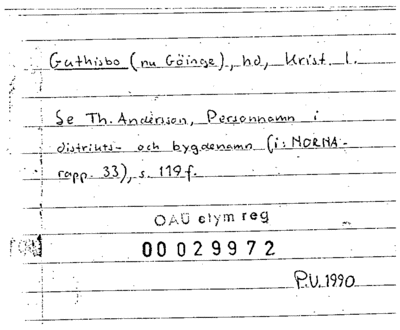 Guthisbo (nu Göinge), hd, Krist. l.
Se Th. Andersson, Personnamn i
distrikts- och bygdenamn (i: NORNA-
rapp. 33), s. 119 f.
OAU etym reg
00029972
P.U. 1990